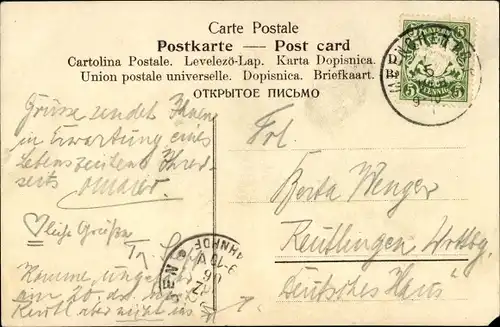 Carte Postale
Postkarte — Post card
Cartolina Postale. Levelező-Lap. Karta Dopisnica.
Union postale universelle. Dopisnica. Briefkaart.
ОТКРЫТОЕ ПИСЬМО
BAYERN
5 PFENNIG 5
Grüsse sendet Ihnen
in Erwartung eines
Lebenszeichens Ihrer-
seits
♡liche Grüße
Komme
am 20. ds.
aber nicht ins
BAHNHOF
9-10 V
Frl.
Berta Wenger
Reutlingen Wttbg.
„Deutsches Haus"